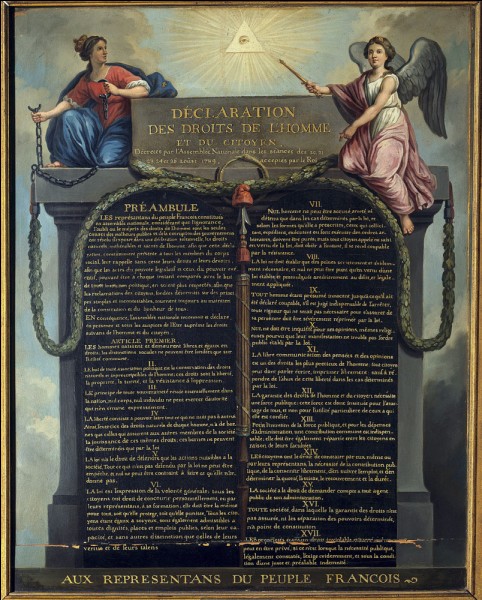 DÉCLARATION
DES DROITS DE L'HOMME
ET DU CITOYEN,
Décretés par l'Assemblée Nationale dans les séances des 20, 21
23, 24 et 26 août 1789, acceptés par le Roi
PRÉAMBULE
LES représentans du peuple François, constitués
en assemblée nationale, considérant que l'ignorance,
l'oubli ou le mépris des droits de l'homme sont les seules
causes des malheurs publics et de la corruption des gouvernemens
ont résolu d'exposer dans une déclaration solemnelle, les droits
naturels, inaliénables et sacrés de l'homme; afin que cette décla-
ration, constamment présente à tous les membres du corps
social, leur rappelle sans cesse leurs droits et leurs devoirs;
afin que les actes du pouvoir législatif et ceux du pouvoir exé-
cutif, pouvant être à chaque instant comparés avec le but
de toute institution politique, en soient plus respectés; afin que
les réclamations des citoyens, fondées désormais sur des princi-
pes simples et incontestables, tournent toujours au maintien
de la constitution et du bonheur de tous.
EN conséquence, l'assemblée nationale reconnoit et déclare,
en présence et sous les auspices de l'Être suprême les droits
suivans de l'homme et du citoyen.
ARTICLE PREMIER.
LES hommes naissent et demeurent libres et égaux en
droits, les distinctions sociales ne peuvent être fondées que sur
l'utilité commune.
II.
LE but de toute association politique est la conservation des droits
naturels et imprescriptibles de l'homme; ces droits sont la liberté,
la propriété, la sureté, et la résistance à l'oppression.
III.
LE principe de toute souveraineté réside essentiellement dans
la nation, nul corps, nul individu ne peut exercer d'autorité
qui n'en émane expressément.
IV.
LA liberté consiste à pouvoir faire tout ce qui ne nuit pas à autrui
Ainsi, l'exercice des droits naturels de chaque homme, n'a de bor-
nes que celles qui assurent aux autres membres de la société
la jouissance de ces mêmes droits; ces bornes ne peuvent
être déterminées que par la loi
V.
LA loi n'a le droit de défendre que les actions nuisibles à la
société. Tout ce qui n'est pas défendu par la loi ne peut être
empêché, et nul ne peut être contraint à faire ce qu'elle n'or-
donne pas.
VI.
LA loi est l'expression de la volonté générale; tous les
citoyens ont droit de concourir personnellement, ou par
leurs représentans, à sa formation; elle doit être la même
pour tous, soit qu'elle protege, soit qu'elle punisse. Tous les citoy-
ens étant égaux à ses yeux, sont également admissibles à
toutes dignités, places et emplois publics, selon leur ca-
pacité, et sans autres distinction que celles de leurs
vertus et de leurs talens
VII.
NUL homme ne peut être accusé, arreté ni
détenu que dans les cas déterminés par la loi, et
selon les formes qu'elle a prescrites, ceux qui sollici-
tent, expédient, exécutent ou font exécuter des ordres ar-
bitraires, doivent être punis; mais tout citoyen appelé ou saisi
en vertu de la loi, doit obéir à l'instant, il se rend coupable
par la résistance.
VIII.
LA loi ne doit établir que des peines strictement et évidem-
ment nécessaires, et nul ne peut être puni qu'en vertu d'une
loi établie et promulguée antérieurement au délit, et légale-
ment appliquée.
IX.
TOUT homme étant présumé innocent jusqu'à ce qu'il ait
été déclaré coupable, s'il est jugé indispensable de l'arrêter,
toute rigueur qui ne serait pas nécessaire pour s'assurer de
sa personne doit être sévèrement réprimée par la loi.
X.
NUL ne doit être inquiété pour ses opinions, mêmes religi-
euses pourvu que leur manifestation ne trouble pas l'ordre
public établi par la loi.
XI.
LA libre communication des pensées et des opinions
est un des droits les plus précieux de l'homme; tout citoyen
peut donc parler, écrire, imprimer librement; sauf à ré-
pondre de l'abus de cette liberté dans les cas déterminés
par la loi.
XII.
LA garantie des droits de l'homme et du citoyen nécessite
une force publique; cette force est donc instituée pour l'avan-
tage de tous, et non pour l'utilité particulière de ceux à qui
elle est confiée.
XIII.
Pour l'entretien de la force publique, et pour les dépenses
d'administration, une contribution commune est indispen-
sable; elle doit être également répartie entre les citoyens en
raison de leurs facultés.
XIV.
LES citoyens ont le droit de constater par eux même ou
par leurs représentans, la nécessité de la contribution pub-
lique, de la consentir librement, d'en suivre l'emploi, et d'en
déterminer la quotité, l'assiette, le recouvrement et la durée.
XV.
LA société a le droit de demander compte à tout agent
public de son administration.
XVI.
TOUTE société, dans laquelle la garantie des droits n'est
pas assurée, ni la séparation des pouvoirs déterminée,
n'a point de constitution.
XVII.
LES propriétés étant un droit inviolable et sacré, nul ne
peut en être privé, si ce n'est lorsque la nécessité publique,
légalement constatée, l'exige évidemment, et sous la condi-
tion d'une juste et préalable indemnité.
AUX REPRESENTANS DU PEUPLE FRANCOIS